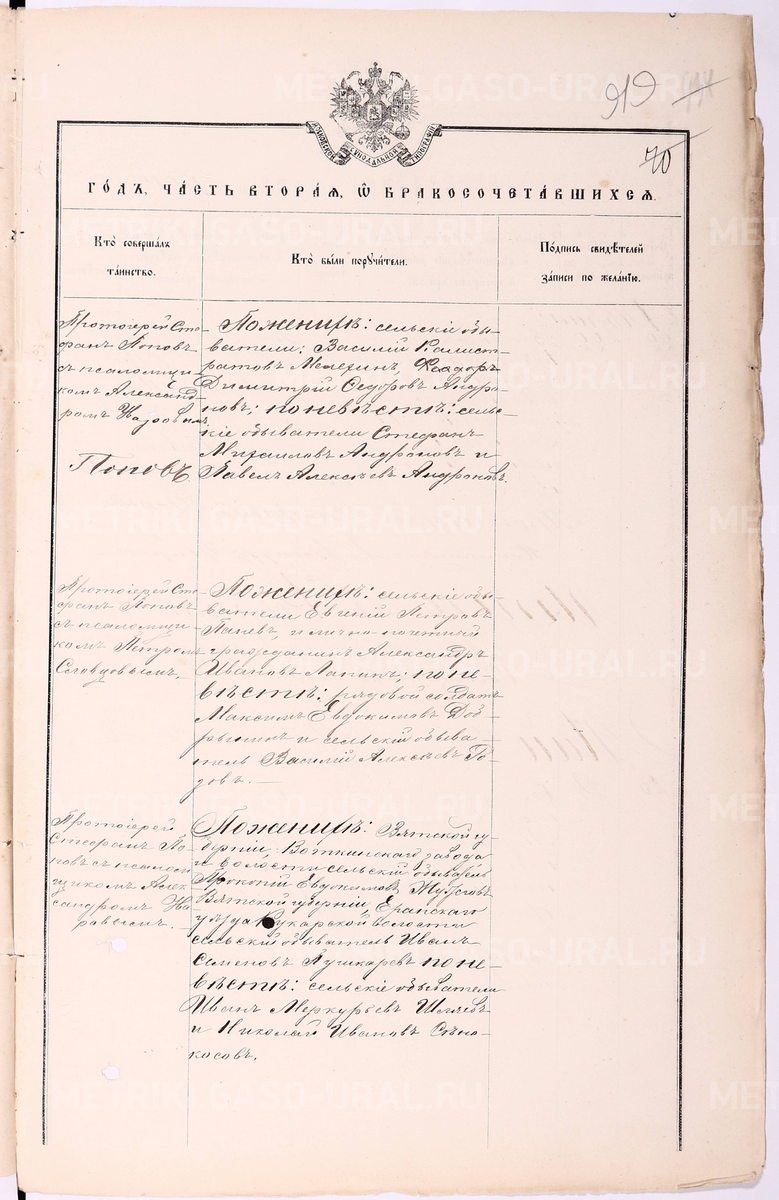 919
70
МОСКОВСКОЙ СѴНОДАЛЬНОЙ ТИПОГРАФІИ
ГО́ДЪ, ЧА́СТЬ ВТОРА́Я, Ѡ҆ БРАКОСОЧЕТА́ВШИХСЯ.
Кто̀ соверша́лъ
та́инство.
Кто̀ бы́ли порꙋчи́тели.
По́дпись свидѣ́телей
за́писи по жела́нїю.
Протоіерей Сте-
фанъ Поповъ
съ псаломщи-
комъ Александ-
ромъ
Поповъ
По женихѣ: сельскіе обы-
ватели: Василій Калист-
ратовъ
Димитрій Ѳедоровъ Андро-
новъ; по невѣстѣ: сельс-
кіе обыватели Стефанъ
Михаиловъ Андроновъ и
Павелъ Алексѣевъ Андроновъ.
Протоіерей Сте-
фанъ Поповъ
съ псаломщи-
комъ Петромъ
Словцовымъ.
По женихѣ: сельскіе обы-
ватели Евгеній Петровъ
Паневъ, и лично-почетный
гражданинъ Александръ
Ивановъ Лапинъ; по не-
вѣстѣ: рядовой солдатъ
Максимъ Евдокимовъ Доб-
рынинъ и сельскій обыва-
тель Василій Алексѣевъ Го-
довъ.
Протоіерей
Стефанъ По-
повъ съ псалом-
щикомъ Алек-
сандромъ На-
ровымъ.
По женихѣ: Вятской гу-
берніи, Воткинскаго завода
и волости сельскій обыватель
Прокопій Евдокимовъ
Вятской губерніи, Еранскаго
уѣзда Кукарской волости
сельскій обыватель Иванъ
Семеновъ Пушкаревъ по не-
вѣстѣ: сельскіе обыватели
Иванъ Меркурьевъ Шляевъ
и Николай Ивановъ Сѣно-
косовъ.
METRIKI.GASO-URAL.RU